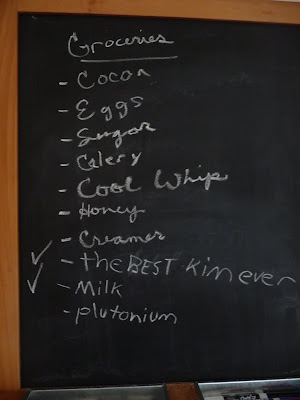 Groceries
- Cocoa
- Eggs
- Sugar
- Celery
- Cool Whip
- Honey
- Creamer
- the BEST Kim ever
- Milk
- plutonium